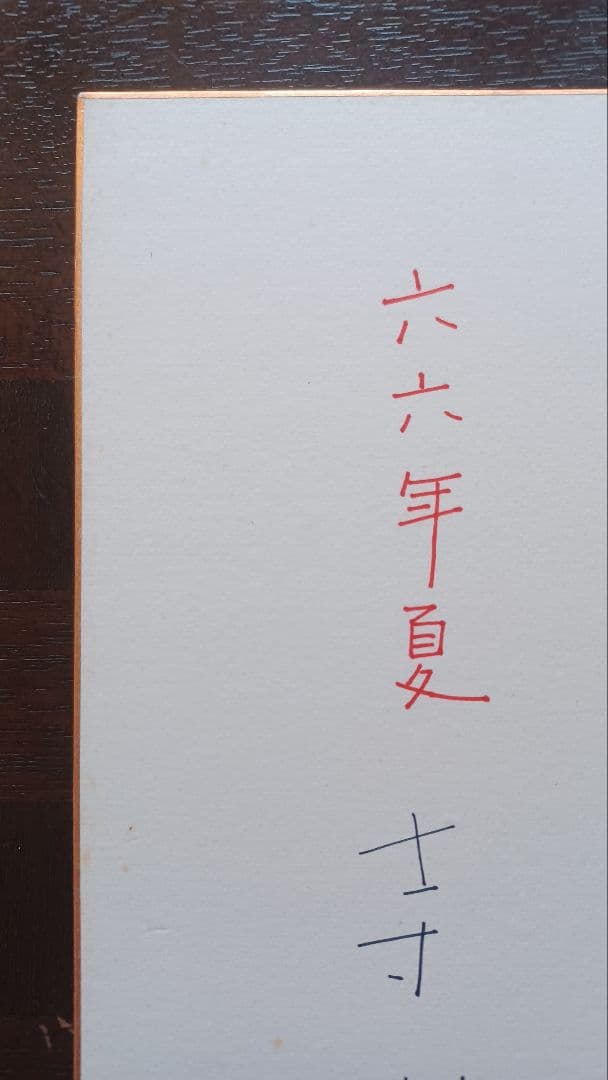 六六年夏
士寸